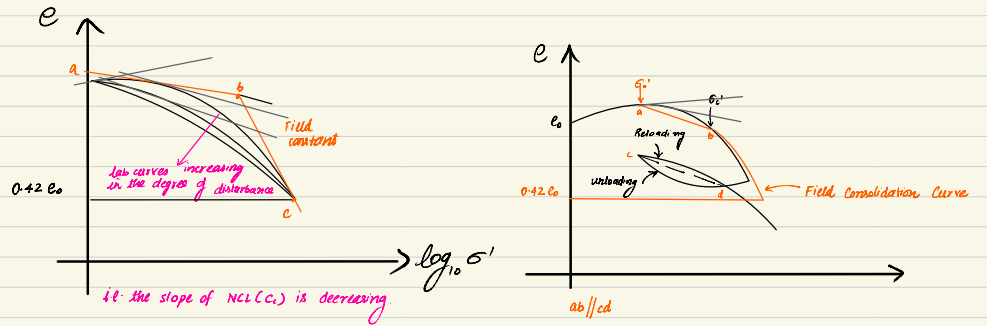 e
a
b
Field
constant
lab curves increasing
in the degree of disturbance
0.42 e₀
c
log₁₀ σ'
i.e. the slope of NCL (Cc) is decreasing.
e
σ₀'
a
σc'
e₀
b
Reloading
c
unloading
d
0.42 e₀
Field Consolidation Curve
ab//cd